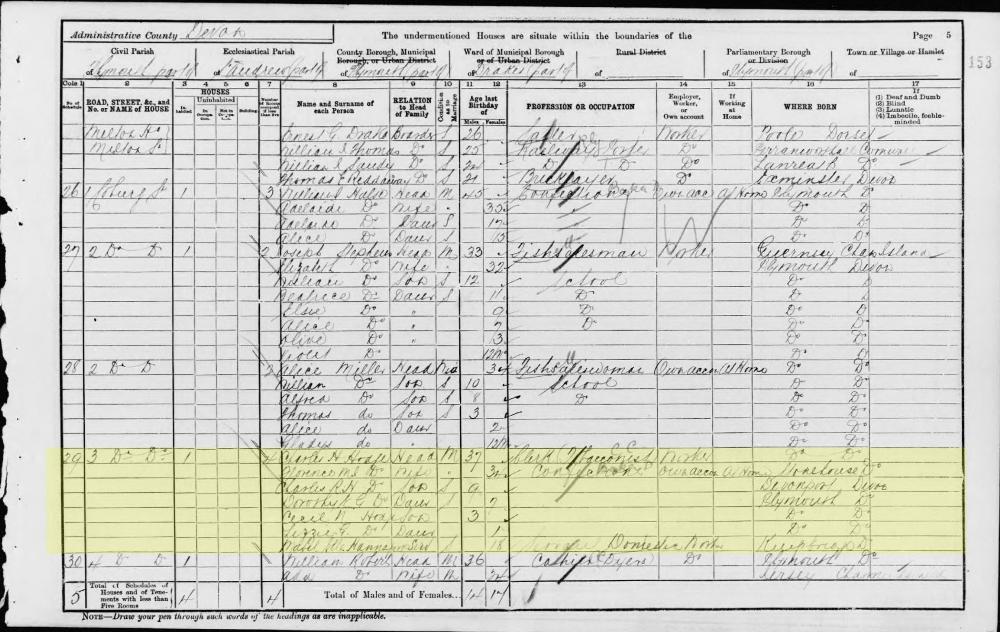 Administrative County Devon
The undermentioned Houses are situate within the boundaries of the
Page 5
153
Civil Parish
Ecclesiastical Parish
County Borough, Municipal Borough, or Urban District
Ward of Municipal Borough or of Urban District
Rural District
Parliamentary Borough or Division
Town or Village or Hamlet
of Plymouth (part of)
of St Andrew (part of)
of Plymouth (part of)
of Drake (part of)
of
of Plymouth (part of)
of
Cols. 1 2 3 4 5 6 7 8 9 10 11 12 13 14 15 16 17
No. of Schedule
ROAD, STREET, &c., and No. or NAME of HOUSE
HOUSES
Inhabited
Uninhabited
In Occupation
Not in Occupation
Building
Number of Rooms occupied if less than five
Name and Surname of each Person
RELATION to Head of Family
Condition as to Marriage
Age last Birthday of
Males Females
PROFESSION OR OCCUPATION
Employer, Worker, or Own account
If Working at Home
WHERE BORN
If
(1) Deaf and Dumb
(2) Blind
(3) Lunatic
(4) Imbecile, feeble-minded
Ernest G Drake Boarder S 26 Worker Poole Dorset
William J Thomas Do S 25 Railway Porter Do
William J Do S Do Do Lanreath Do
Thomas Do S 21 Bricklayer Do Axminster Devon
26 1 St 1 3 William Head M 45 Own acc At Home Plymouth Do
Adelaide Do Wife " 35 Do Do
Adelaide Do Daur S 17 Do Do
Alice Do Daur S 15 Do Do
27 2 Do Do 1 2 Joseph Stephens Head M 33 Fish Salesman Worker Guernsey Chan Island
Elizabeth Do Wife " 32 Plymouth Devon
William Do Son S 12 School Do Do
Beatrice Do Daur S 11 Do Do Do
Elsie Do " 9 Do Do Do
Alice Do " 7 Do Do Do
Olive Do " 3 Do Do
Violet Do " Do Do
28 2 Do Do 1 2 Alice Miller Head Wid 34 Fish Saleswoman Own acc At Home Do Do
William Do Son S 10 School Do Do
Alfred Do Son S 8 Do Do Do
Thomas do Son S 3 Do Do
Alice do Daur 2 Do Do
Gladys do " Do Do
29 3 Do Do 1 4 Charles H Hodge Head M 37 Clerk Worker Do Do
Florence M Do Wife " 34 Own acc At Home Stonehouse Do
Charles R H Do Son S 9 Devonport Devon
Dorothy G Do Daur S 7 Plymouth Do
Cecil Hodge Son 3 Do Do
Lizzie G Do Daur 1 Do Do
Hannaford Serv S 18 Domestic Worker Do
30 4 Do Do 1 William Robert Head M 36 Cashier (Dyers) Do Plymouth Do
Ada Do Wife M 34 Jersey Channel Island
5
Total of Schedules of Houses and of Tenements with less than Five Rooms
4 4
Total of Males and of Females...
14 17
NOTE—Draw your pen through such words of the headings as are inapplicable.